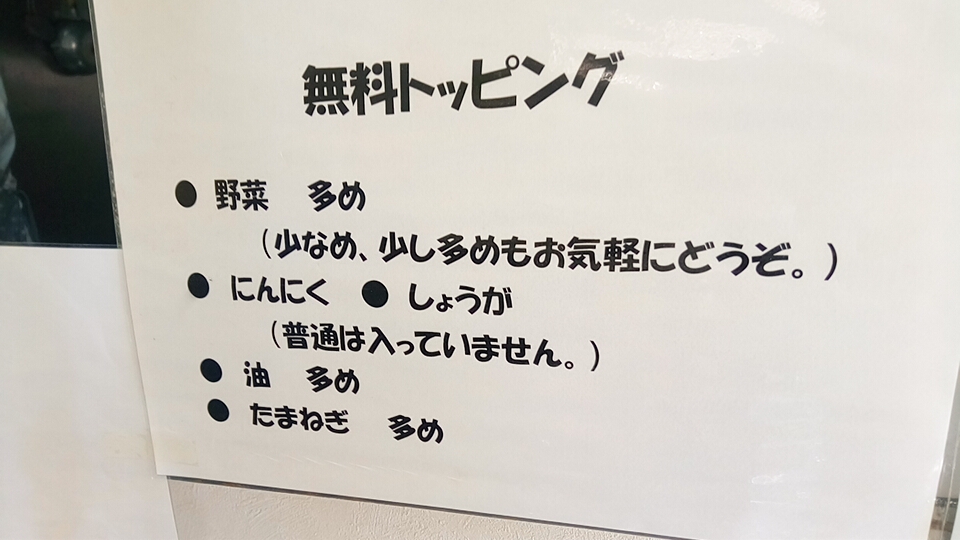 無料トッピング
● 野菜 多め
（少なめ、少し多めもお気軽にどうぞ。）
● にんにく ● しょうが
（普通は入っていません。）
● 油 多め
● たまねぎ 多め